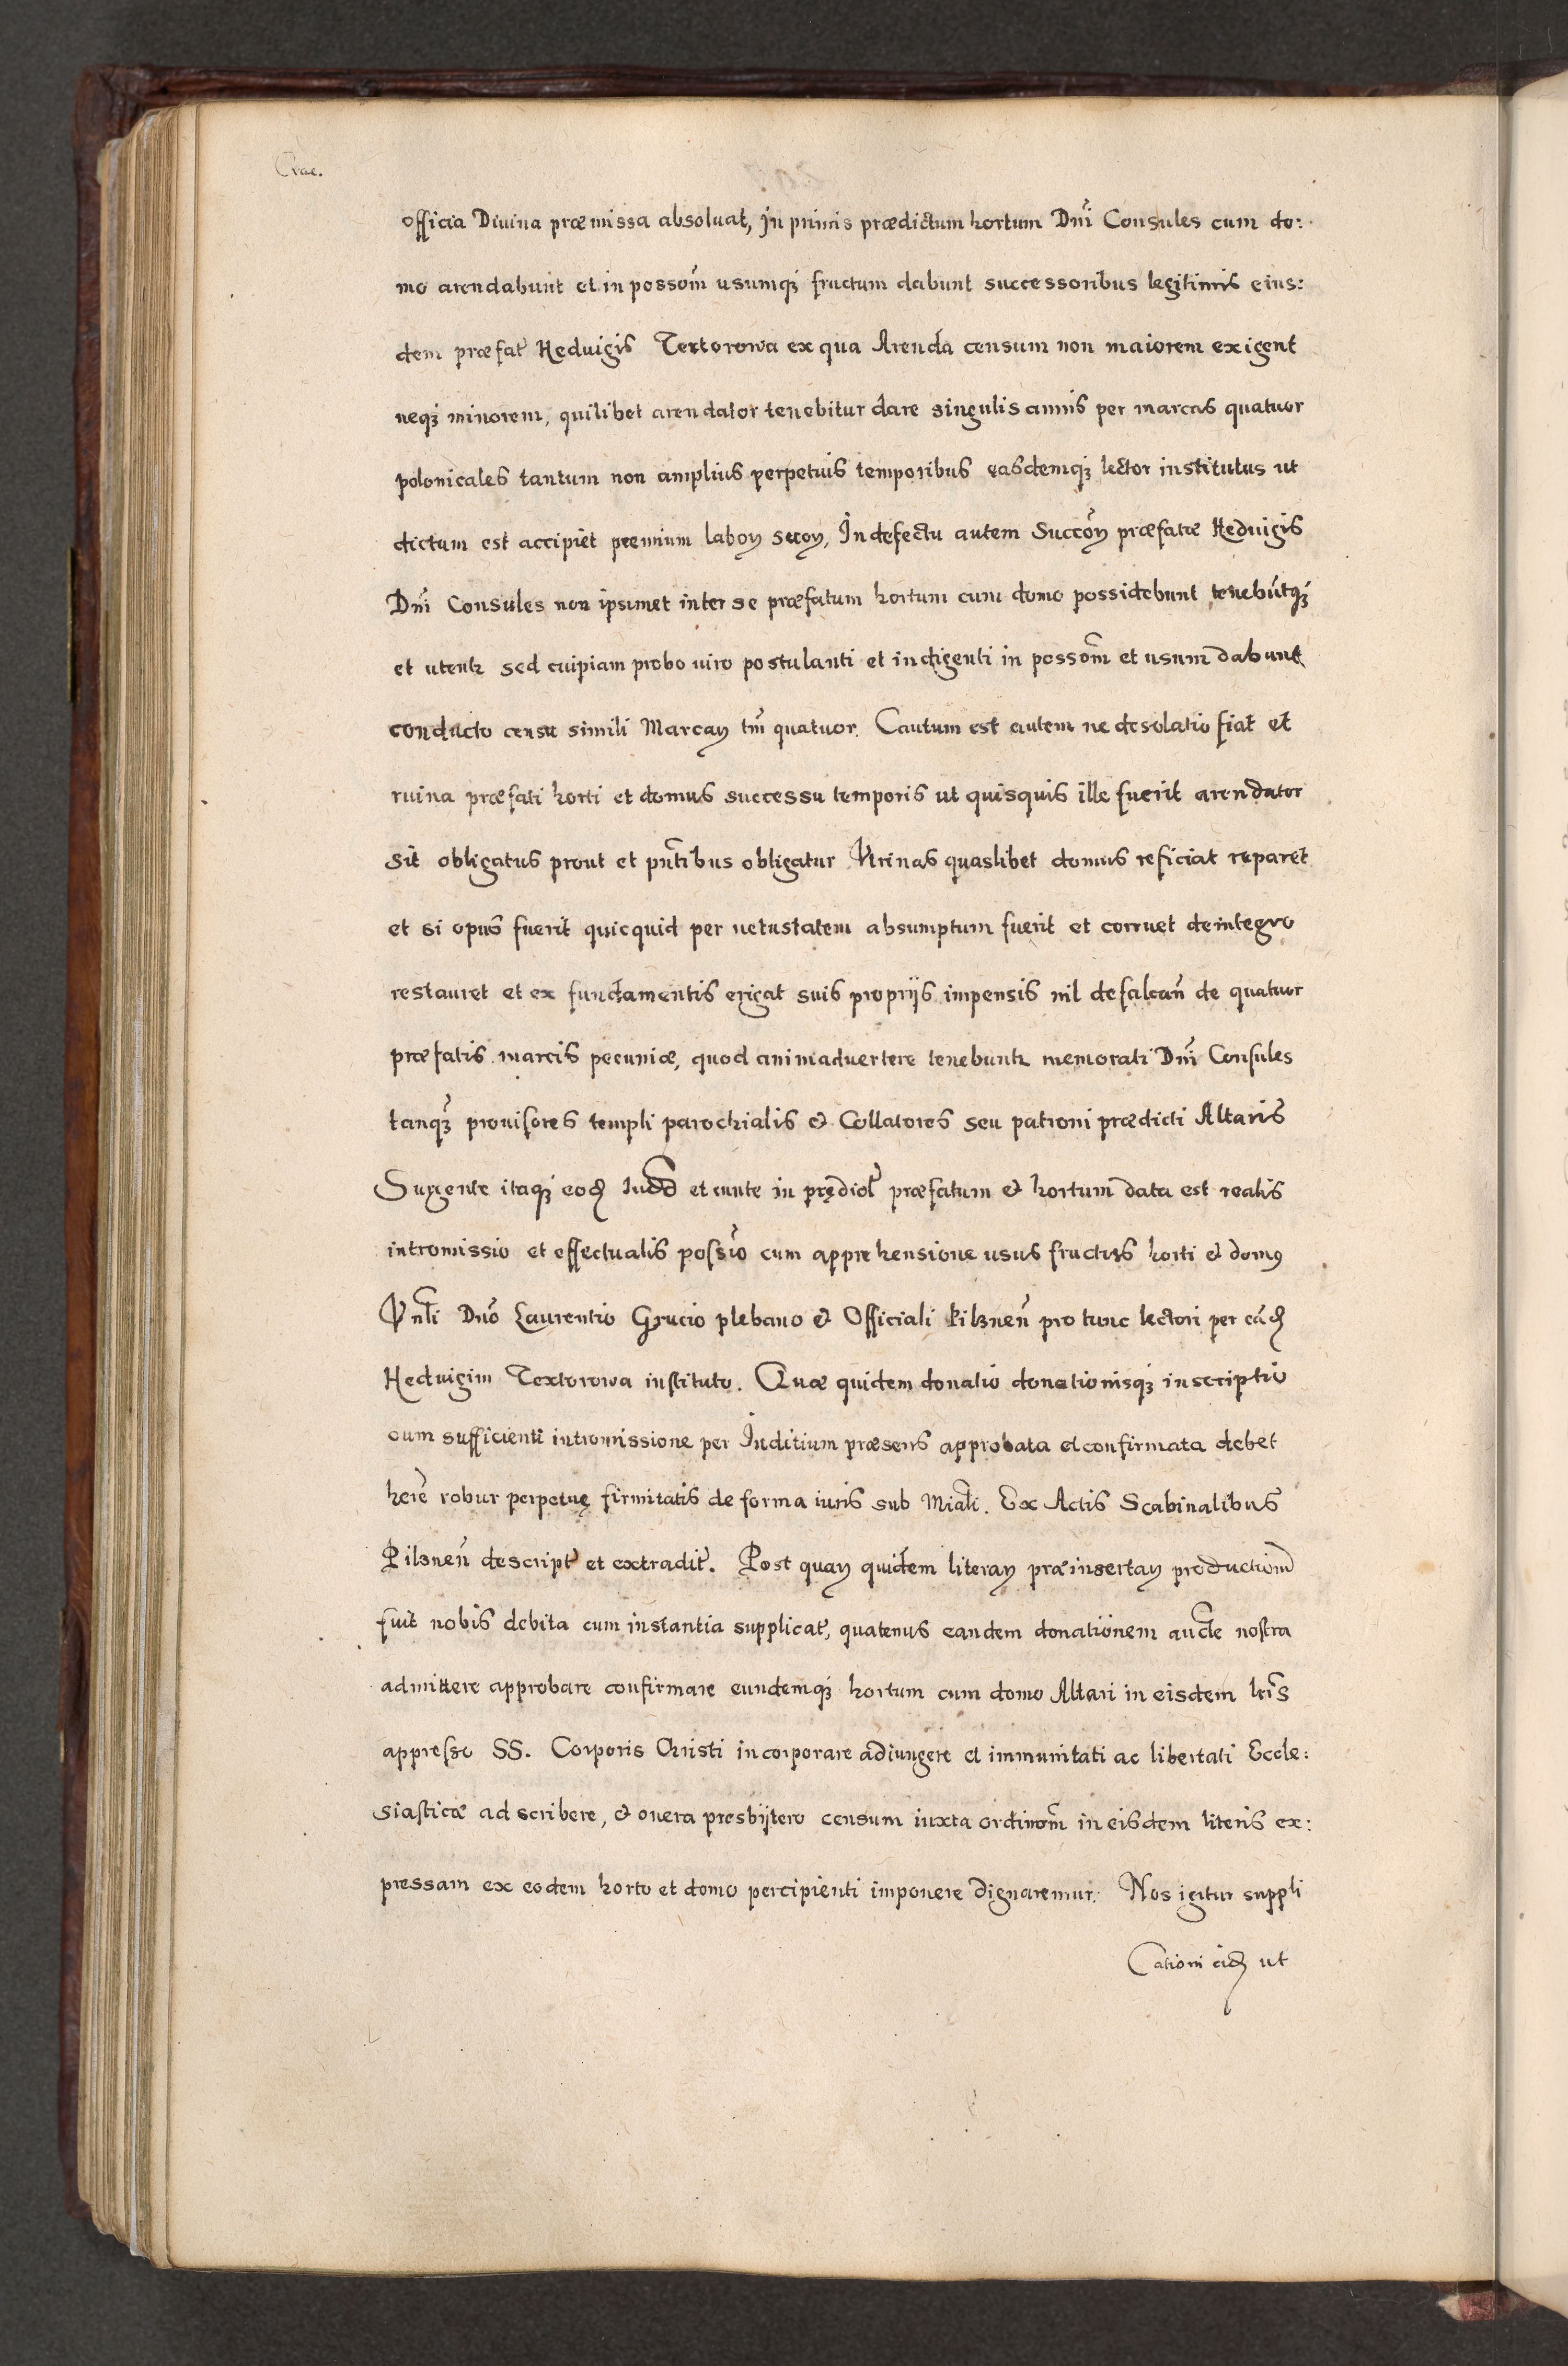 Crac.
officia Divina præmissa absoluat, In primis prædictum hortum Dni Consules cum do:
mo arendabunt et in possom̃ usumq fructum dabunt successoribus legitimis eius:
dem præfat Heduigis Textorowa ex qua Arenda censum non maiorem exigent
neq minorem, quilibet arendator tenebitur dare singulis annis per marcas quatuor
polonicales tantum non amplius perpetuis temporibus easdemq lector institutus ut
dictum est accipiet premium laboꝝ secoꝝ, In defectu autem Succõꝝ præfatæ Heduigis
Dni Consules non ipsimet inter se præfatum hortum cum domo possidebunt tenebũtq
et utentr sed cuipiam probo viro postulanti et indigenti in possom̃ et usum dabunt
conducto censu simili Marcaꝝ tm̃ quatuor. Cautum est autem ne desolatio fiat et
ruina præfati horti et domus successu temporis ut quisquis ille fuerit arendator
sit obligatus prout et pñtibus obligatur Vrinas quaslibet domus reficiat reparet
et si opus fuerit quicquid per uetustatem absumptum fuerit et corruet deintegro
restauret et ex fundamentis erigat suis proprijs impensis nil defalcañ de quatuor
præfatis marcis pecuniæ, quod animaduertere tenebuntr memorati Dni Consules
tanq̃ prouisores templi parochialis & Collatores seu patroni prædicti Altaris
Surgente itaq eod et eunte in prędiol præfatum & hortum data est realis
intromissio et effectualis possio cum apprehensione usus fructus horti & domꝰ
Vnli Dño Laurentio Grucio plebano & Officiali Pilsneñ pro tunc lectori per eãd
Heduigim Textorowa instituto. Quæ quidem donatio donationisq inscriptio
cum sufficienti intromissione per Inditium præsens approbata et confirmata debet
here robur perpetuę firmitatis de forma iuris sub Miali. Ex Actis Scabinalibus
Pilsneñ descript et extradit. Post quaꝝ quidem literaꝝ præinsertaꝝ productiom̃
fuit nobis debita cum instantia supplicat, quatenus eandem donationem aucte nostra
admittere approbare confirmare eundemq hortum cum domo Altari in eisdem lris
appresso SS. Corporis Christi incorporare adiungere et immunitati ac libertati Eccle:
siasticæ adscribere, & onera presbijtero censum iuxta ordinom̃ in eisdem literis ex:
pressam ex eodem horto et domo percipienti imponere dignaremur. Nos igitur suppli
Cationi eid ut